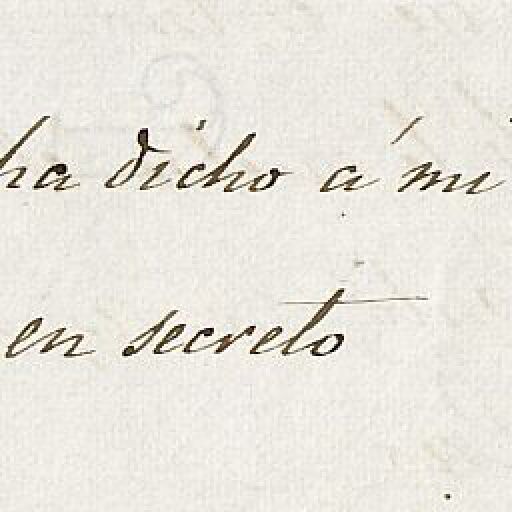 ha dicho á mi
en secreto